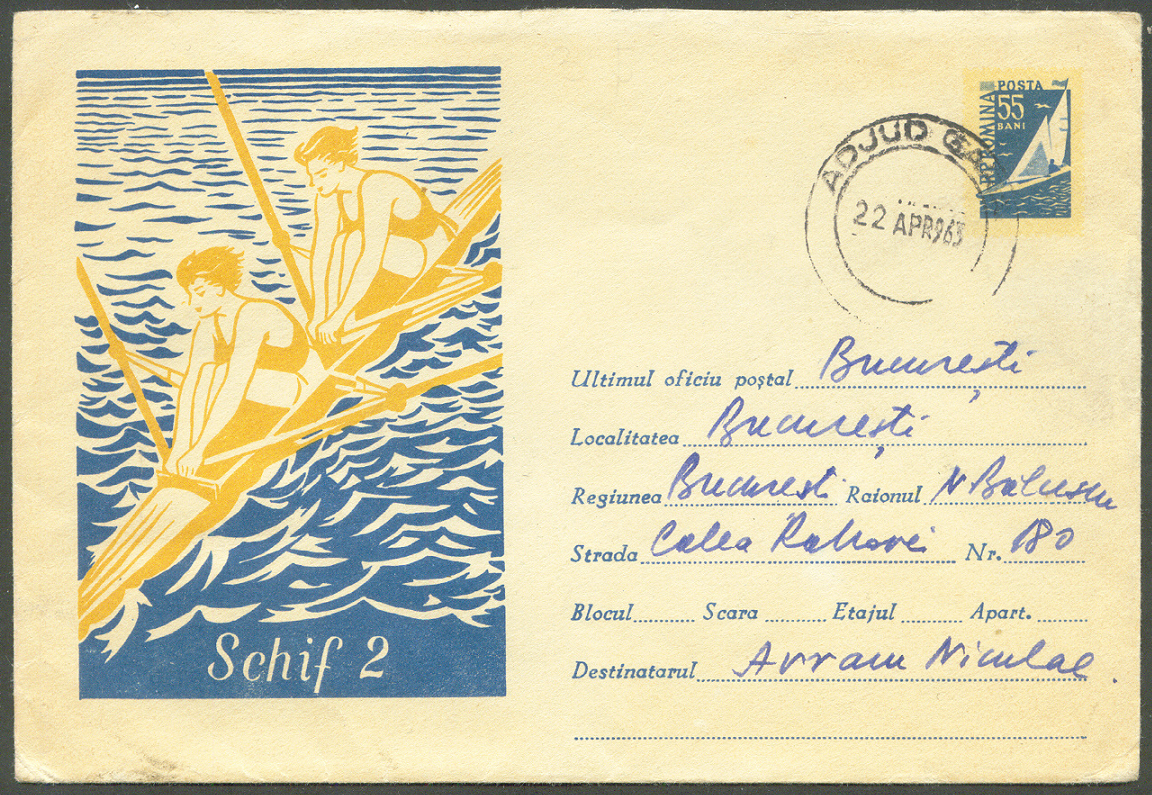 POSTA
R.P.ROMINA
55
BANI
ADJUD GA
22 APR 963
Ultimul oficiu poştal București
Localitatea București
Regiunea Bucuresti Raionul N Bălcescu
Strada Calea Rahovei Nr. 180
Blocul Scara Etajul Apart.
Destinatarul Avram Niculae
Schif 2